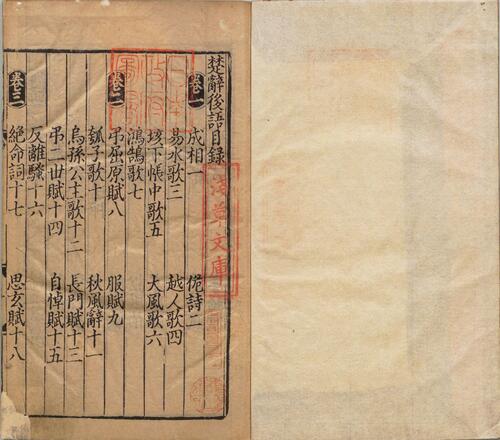 楚辭後語目録
卷一
成相一 佹詩二
易水歌三 越人歌四
垓下帳中歌五 大風歌六
鴻鵠歌七
卷二
弔屈原賦八 服賦九
瓠子歌十 秋風辭十一
烏孫公主歌十二 長門賦十三
弔二世賦十四 自悼賦十五
卷三
反離騷十六
絶命詞十七 思玄賦十八
淺草文庫